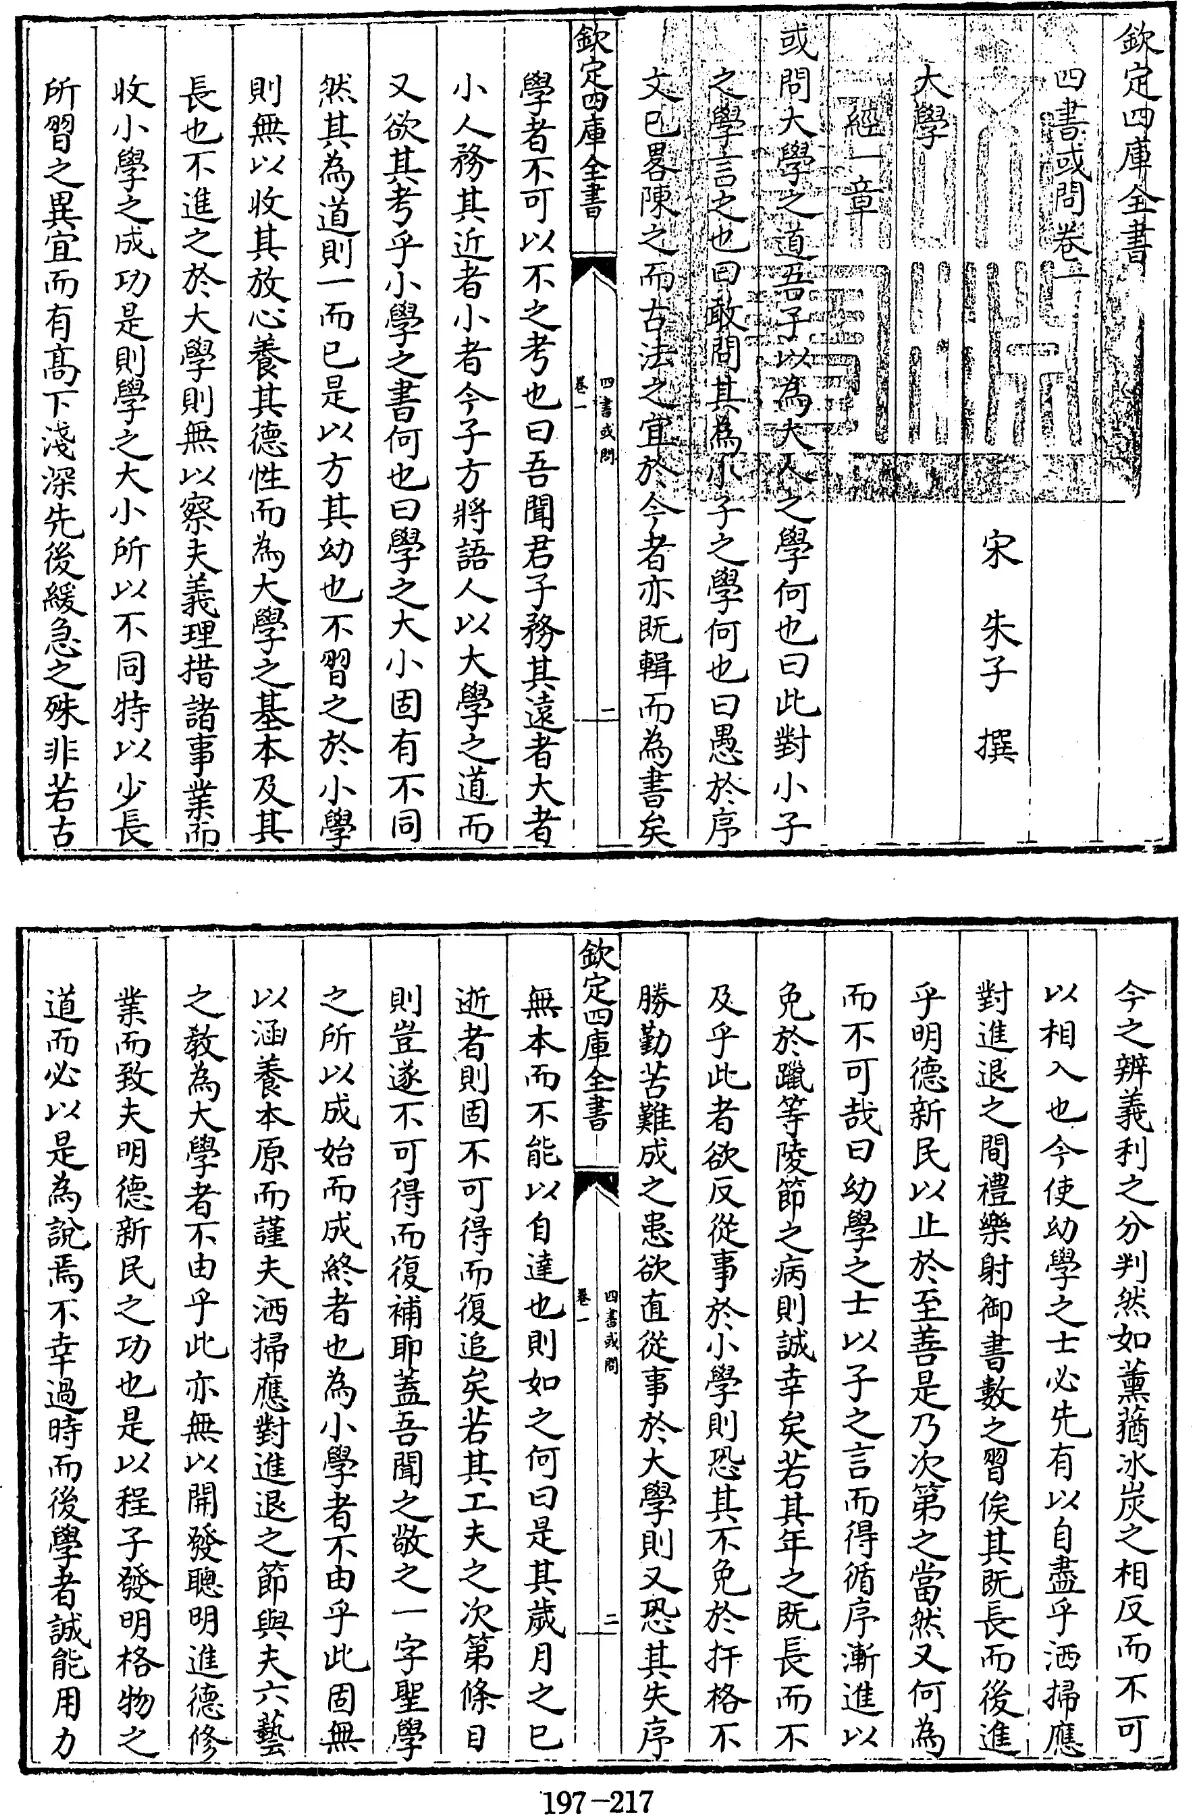 欽定四庫全書
四書或問卷一
宋　朱子　撰
大學
經一章
或問大學之道吾子以為大人之學何也曰此對小子
之學言之也曰敢問其為小子之學何也曰愚於序
文已畧陳之而古法之宜於今者亦既輯而為書矣
欽定四庫全書
四書或問
卷一
一
學者不可以不之考也曰吾聞君子務其遠者大者
小人務其近者小者今子方將語人以大學之道而
又欲其考乎小學之書何也曰學之大小固有不同
然其為道則一而已是以方其幼也不習之於小學
則無以收其放心養其德性而為大學之基本及其
長也不進之於大學則無以察夫義理措諸事業而
收小學之成功是則學之大小所以不同特以少長
所習之異宜而有髙下淺深先後緩急之殊非若古
今之辨義利之分判然如薰蕕冰炭之相反而不可
以相入也今使幼學之士必先有以自盡乎洒掃應
對進退之間禮樂射御書數之習俟其既長而後進
乎明德新民以止於至善是乃次第之當然又何為
而不可哉曰幼學之士以子之言而得循序漸進以
免於躐等陵節之病則誠幸矣若其年之既長而不
及乎此者欲反從事於小學則恐其不免於扞格不
勝勤苦難成之患欲直從事於大學則又恐其失序
欽定四庫全書
四書或問
卷一
二
無本而不能以自達也則如之何曰是其歲月之已
逝者則固不可得而復追矣若其工夫之次第條目
則豈遂不可得而復補耶蓋吾聞之敬之一字聖學
之所以成始而成終者也為小學者不由乎此固無
以涵養本原而謹夫洒掃應對進退之節與夫六藝
之教為大學者不由乎此亦無以開發聰明進德修
業而致夫明德新民之功也是以程子發明格物之
道而必以是為說焉不幸過時而後學者誠能用力
197-217